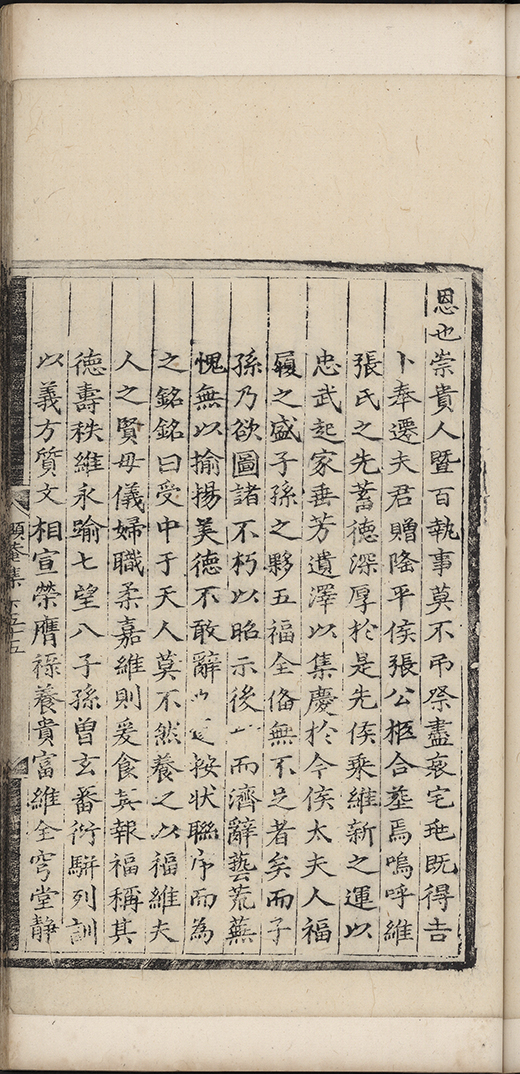 恩也崇貴人暨百執事莫不吊祭盡哀宅兆既得吉
卜奉遷夫君贈隆平侯張公柩合塟焉嗚呼維
張氏之先蓄德深厚於是先侯乗維新之運以
忠武起家垂芳遺澤以集慶於今侯太夫人福
履之盛子孫之夥五福全俻無不足者矣而子
孫乃欲圖諸不朽以昭示後 而濟辭藝荒蕪
愧無以揄揚美德不敢辭 按状聯序而為
之銘銘曰受中于天人莫不然養之以福維夫
人之賢母儀婦職柔嘉維則爰食其報福稱其
德壽秩維永踰七望八子孫曽玄番衍駢列訓
以義方質文相宣榮膺祿養貴富維全穹堂静
頥菴集 下 五十五